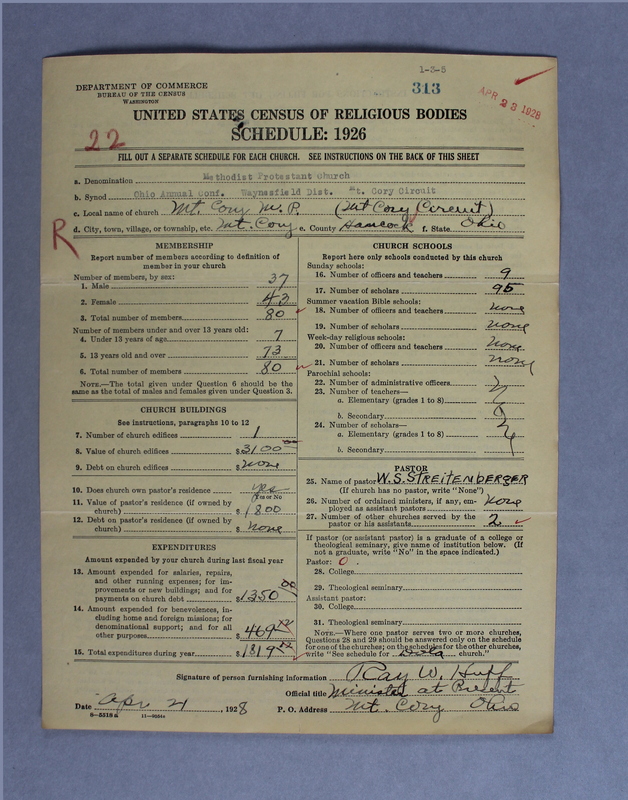 1-3-5
DEPARTMENT OF COMMERCE
BUREAU OF THE CENSUS
WASHINGTON
313
APR 23 1928
UNITED STATES CENSUS OF RELIGIOUS BODIES
22
SCHEDULE: 1926
FILL OUT A SEPARATE SCHEDULE FOR EACH CHURCH. SEE INSTRUCTIONS ON THE BACK OF THIS SHEET
a. Denomination Methodist Protestant Church
b. Synod Ohio Annual Conf. Waynesfield Dist. Mt. Cory Circuit
c. Local name of church Mt. Cory M.P. (Mt Cory Circuit)
R
d. City, town, village, or township, etc. Mt. Cory e. County Hancock f. State Ohio
MEMBERSHIP
Report number of members according to definition of
member in your church
Number of members, by sex:
1. Male 37
2. Female 43
3. Total number of members 80
Number of members under and over 13 years old:
4. Under 13 years of age 7
5. 13 years old and over 73
6. Total number of members 80
NOTE.—The total given under Question 6 should be the
same as the total of males and females given under Question 3.
CHURCH BUILDINGS
See instructions, paragraphs 10 to 12
7. Number of church edifices 1
8. Value of church edifices $3100 00
9. Debt on church edifices $none
10. Does church own pastor's residence yes
(Yes or No)
11. Value of pastor's residence (if owned by
church) $1800
12. Debt on pastor's residence (if owned by
church) $none
EXPENDITURES
Amount expended by your church during last fiscal year
13. Amount expended for salaries, repairs,
and other running expenses; for im-
provements or new buildings; and for
payments on church debt $1350 00
14. Amount expended for benevolences, in-
cluding home and foreign missions; for
denominational support; and for all
other purposes $469 12
15. Total expenditures during year $1819 12
CHURCH SCHOOLS
Report here only schools conducted by this church
Sunday schools:
16. Number of officers and teachers 9
17. Number of scholars 95
Summer vacation Bible schools:
18. Number of officers and teachers none
19. Number of scholars none
Week-day religious schools:
20. Number of officers and teachers none
21. Number of scholars none
Parochial schools:
22. Number of administrative officers
23. Number of teachers—
a. Elementary (grades 1 to 8)
b. Secondary
24. Number of scholars—
a. Elementary (grades 1 to 8)
b. Secondary
PASTOR
25. Name of pastor W.S. STREITENBERGER
(If church has no pastor, write "None")
26. Number of ordained ministers, if any, em-
ployed as assistant pastors none
27. Number of other churches served by the
pastor or his assistants 2
If pastor (or assistant pastor) is a graduate of a college or
theological seminary, give name of institution below. (If
not a graduate, write "No" in the space indicated.)
Pastor: 0
28. College
29. Theological seminary
Assistant pastor:
30. College
31. Theological seminary
NOTE.—Where one pastor serves two or more churches,
Questions 28 and 29 should be answered only on the schedule
for one of the churches; on the schedules for the other churches,
write "See schedule for Dola church."
Signature of person furnishing information Ray W. Huff
Official title Minister at Present
Date Apr 21, 1928 P. O. Address Mt. Cory Ohio